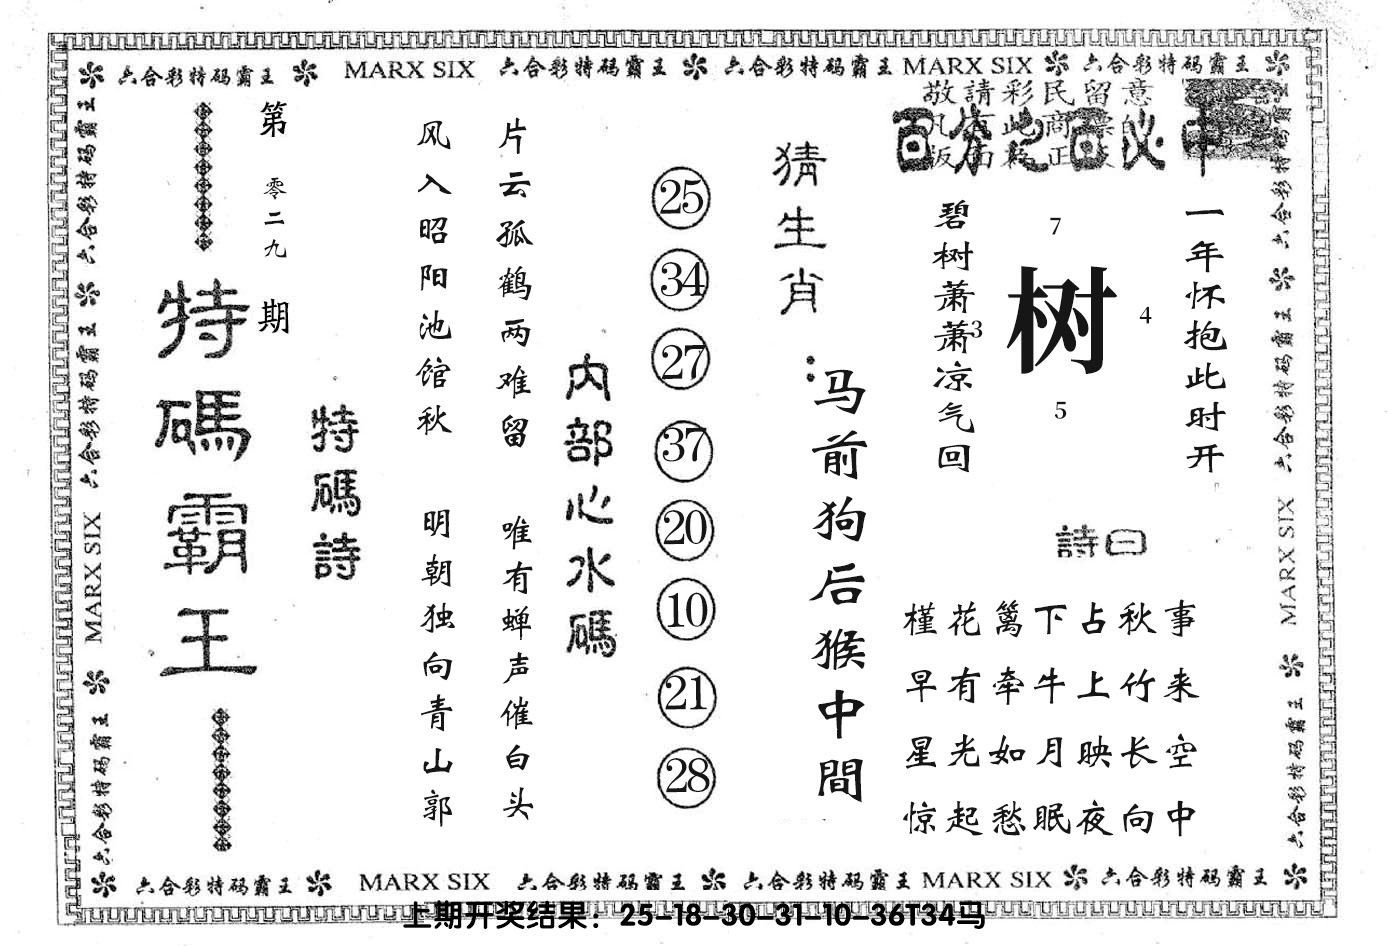 六合彩特码霸王 MARX SIX 六合彩特码霸王 六合彩特码霸王 MARX SIX 六合彩特码霸王
六合彩特码霸王 六合彩特码霸王 MARX SIX 六合彩特码霸王
六合彩特码霸王 六合彩特码霸王 MARX SIX 六合彩特码霸王
敬請彩民留意
百分之百必中
一年怀抱此时开
7
3
树
4
5
碧树萧萧凉气回
詩曰
槿花篱下占秋事
早有牵牛上竹来
星光如月映长空
惊起愁眠夜向中
猜生肖:
马前狗后猴中間
25
34
27
37
20
10
21
28
内部心水碼
片云孤鹤两难留 唯有蝉声催白头
风入昭阳池馆秋 明朝独向青山郭
特碼詩
第零二九期
特碼霸王
六合彩特码霸王 MARX SIX 六合彩特码霸王 六合彩特码霸王 MARX SIX 六合彩特码霸王
上期开奖结果：25-18-30-31-10-36T34马